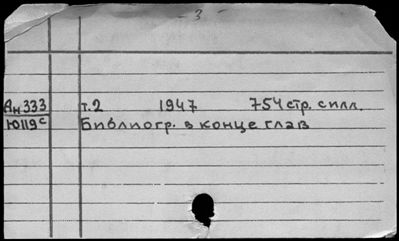 - 3 -
Ан333 т.2 1947 754 стр. с илл.
Ю119с Библиогр. в конце глав